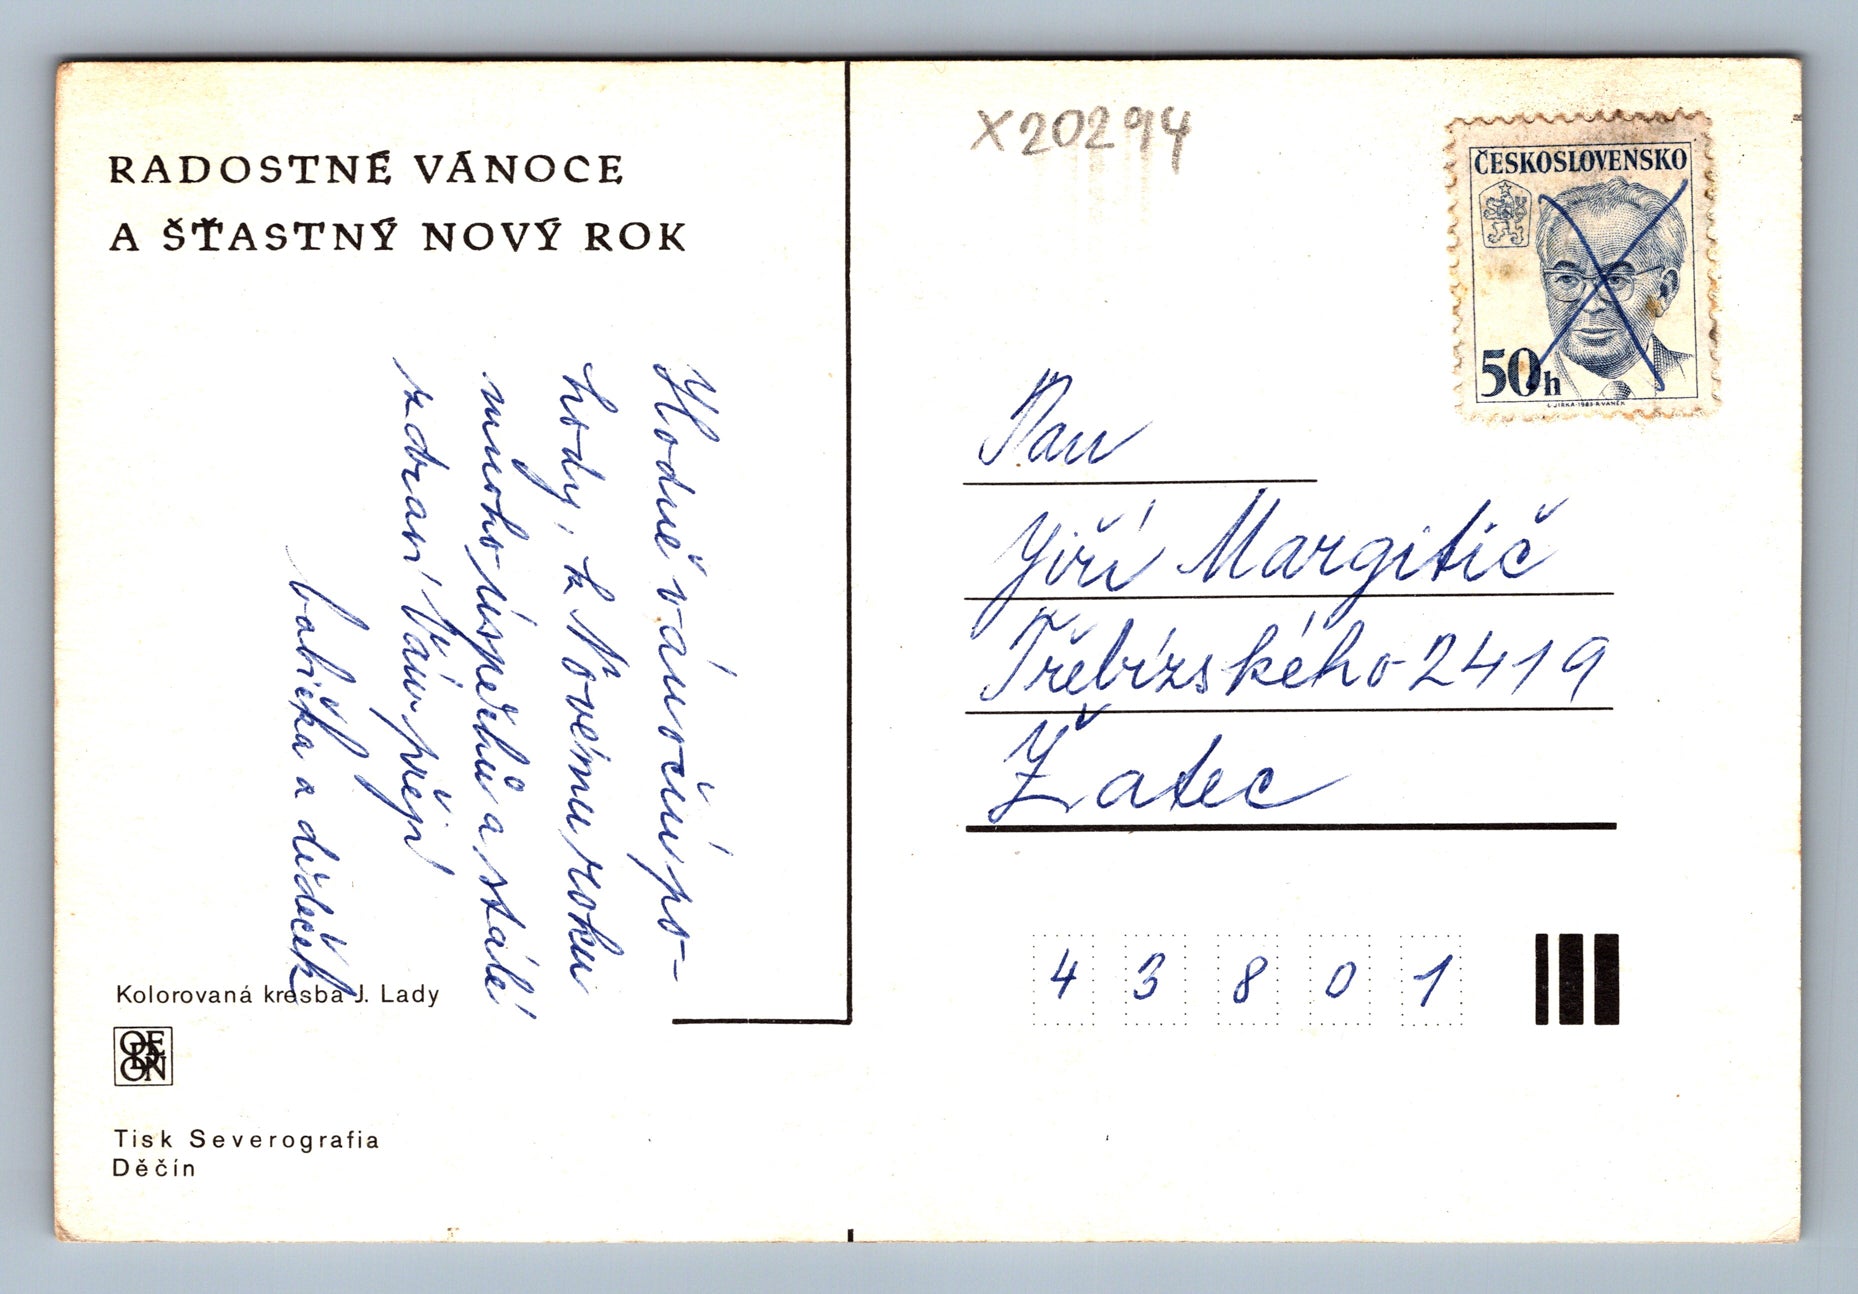 RADOSTNÉ VÁNOCE
A ŠŤASTNÝ NOVÝ ROK
Hodně vánoční po-
hody, k Novému roku
mnoho úspěchů a stálé
zdraví Vám přejí
babička a dědeček
Kolorovaná kresba J. Lady
ODEON
Tisk Severografia
Děčín
X20294
ČESKOSLOVENSKO
50h
L.JIRKA-1983-R.VANĚK
Pan
Jiří Margitič
Třebízského 2419
Žatec
4 3 8 0 1